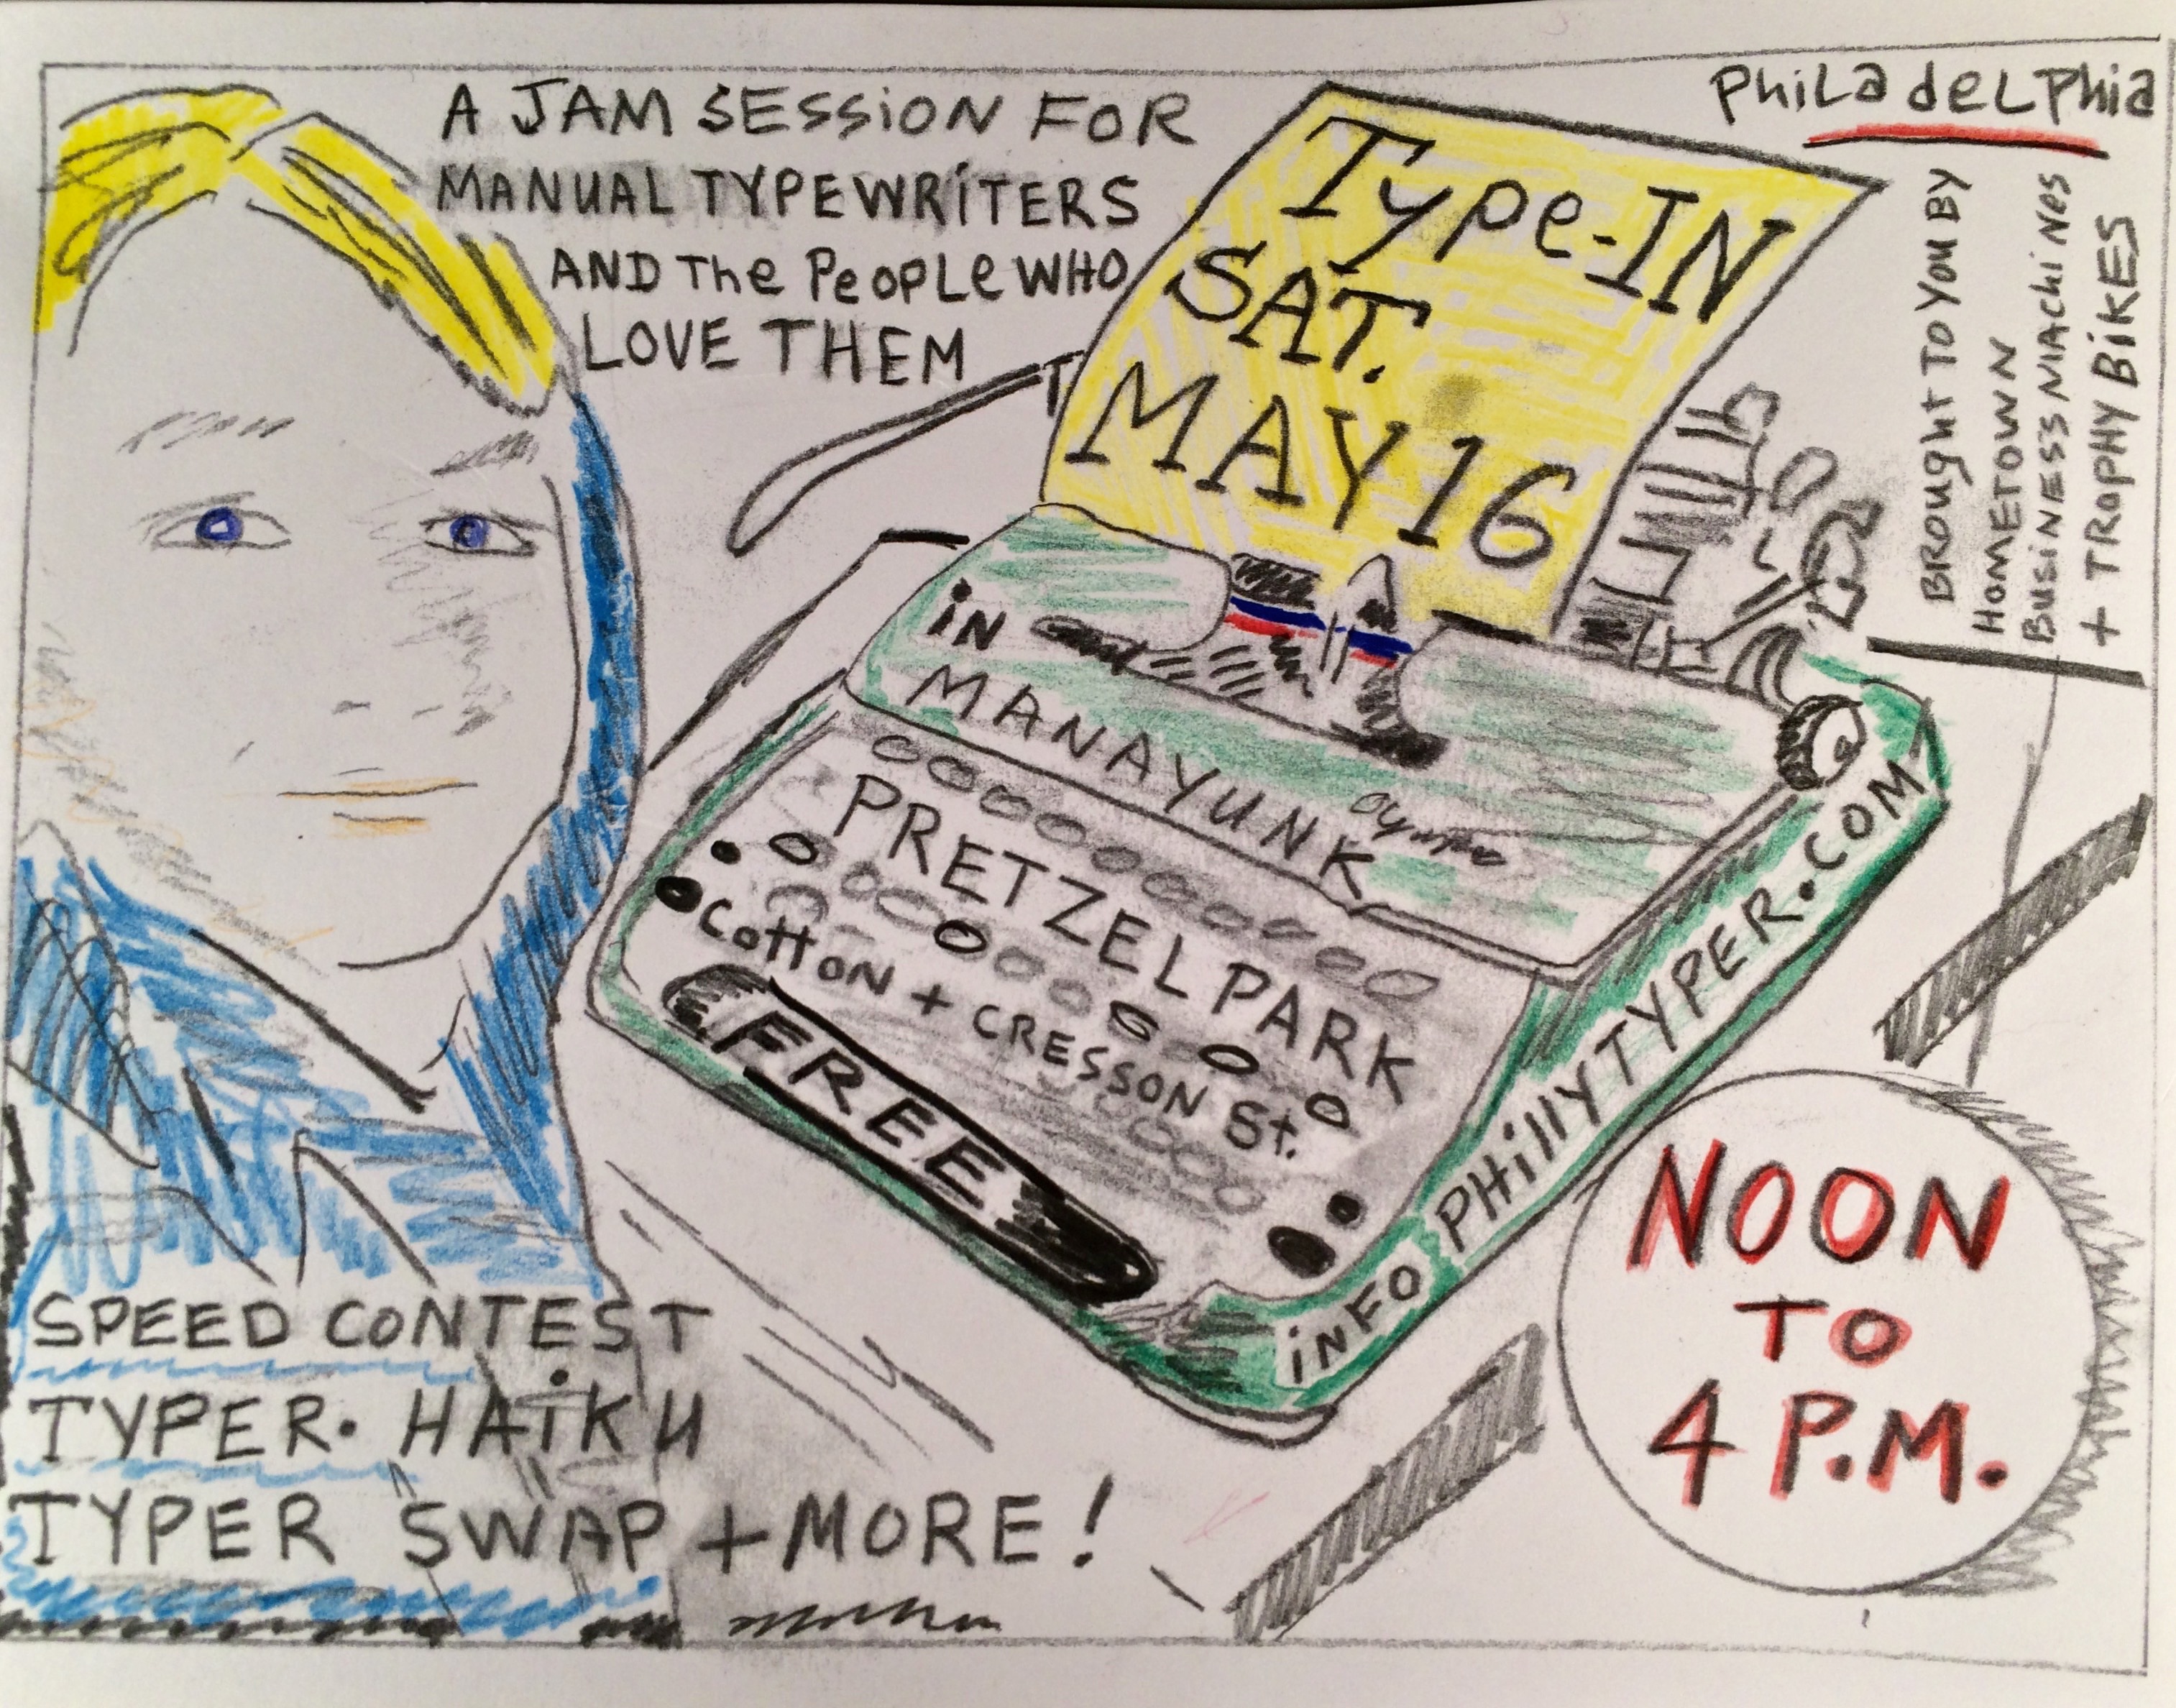 A JAM SESSION FOR
MANUAL TYPEWRITERS
AND The PeOPLe WHO
LOVE THEM
PhiLadeLPhia
Type-IN
SAT.
MAY 16
BROUghT TO YOU BY
HOMETOWN
BUSiNESS MAchiNes
+ TROPHY BiKES
iN
MANAYUNK
PRETZEL PARK
COttON + CRESSON St.
FREE
iNFO PHillYTYPER.COM
NOON
TO
4 P.M.
SPEED CONTEST
TYPER • HAiKU
TYPER SWAP + MORE!